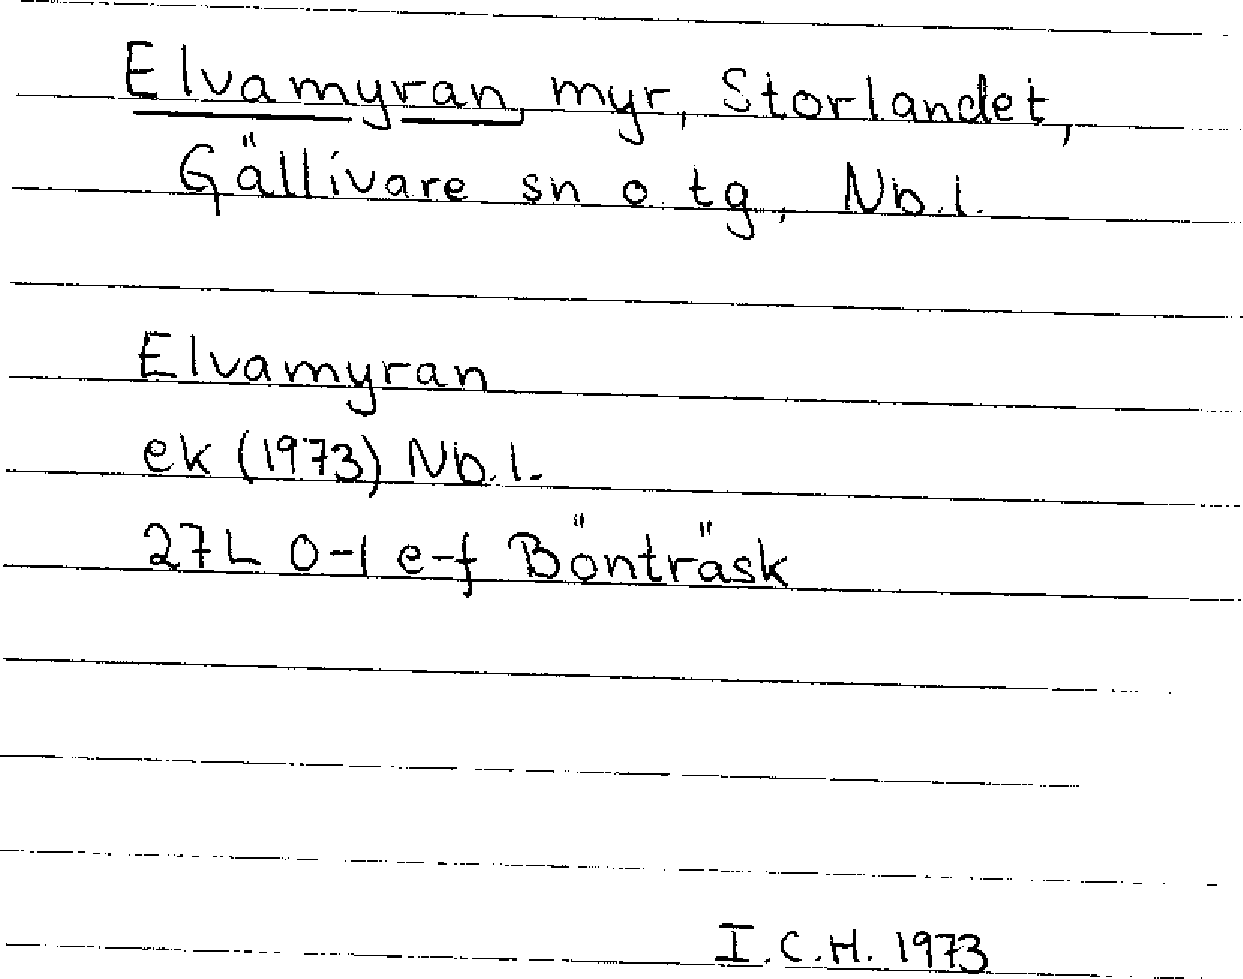 Elvamyran, myr, Storlandet,
Gällivare sn o. tg, Nb.l.
Elvamyran
ek (1973) Nb.l.
27L 0-1 e-f Bönträsk
I.C.H. 1973